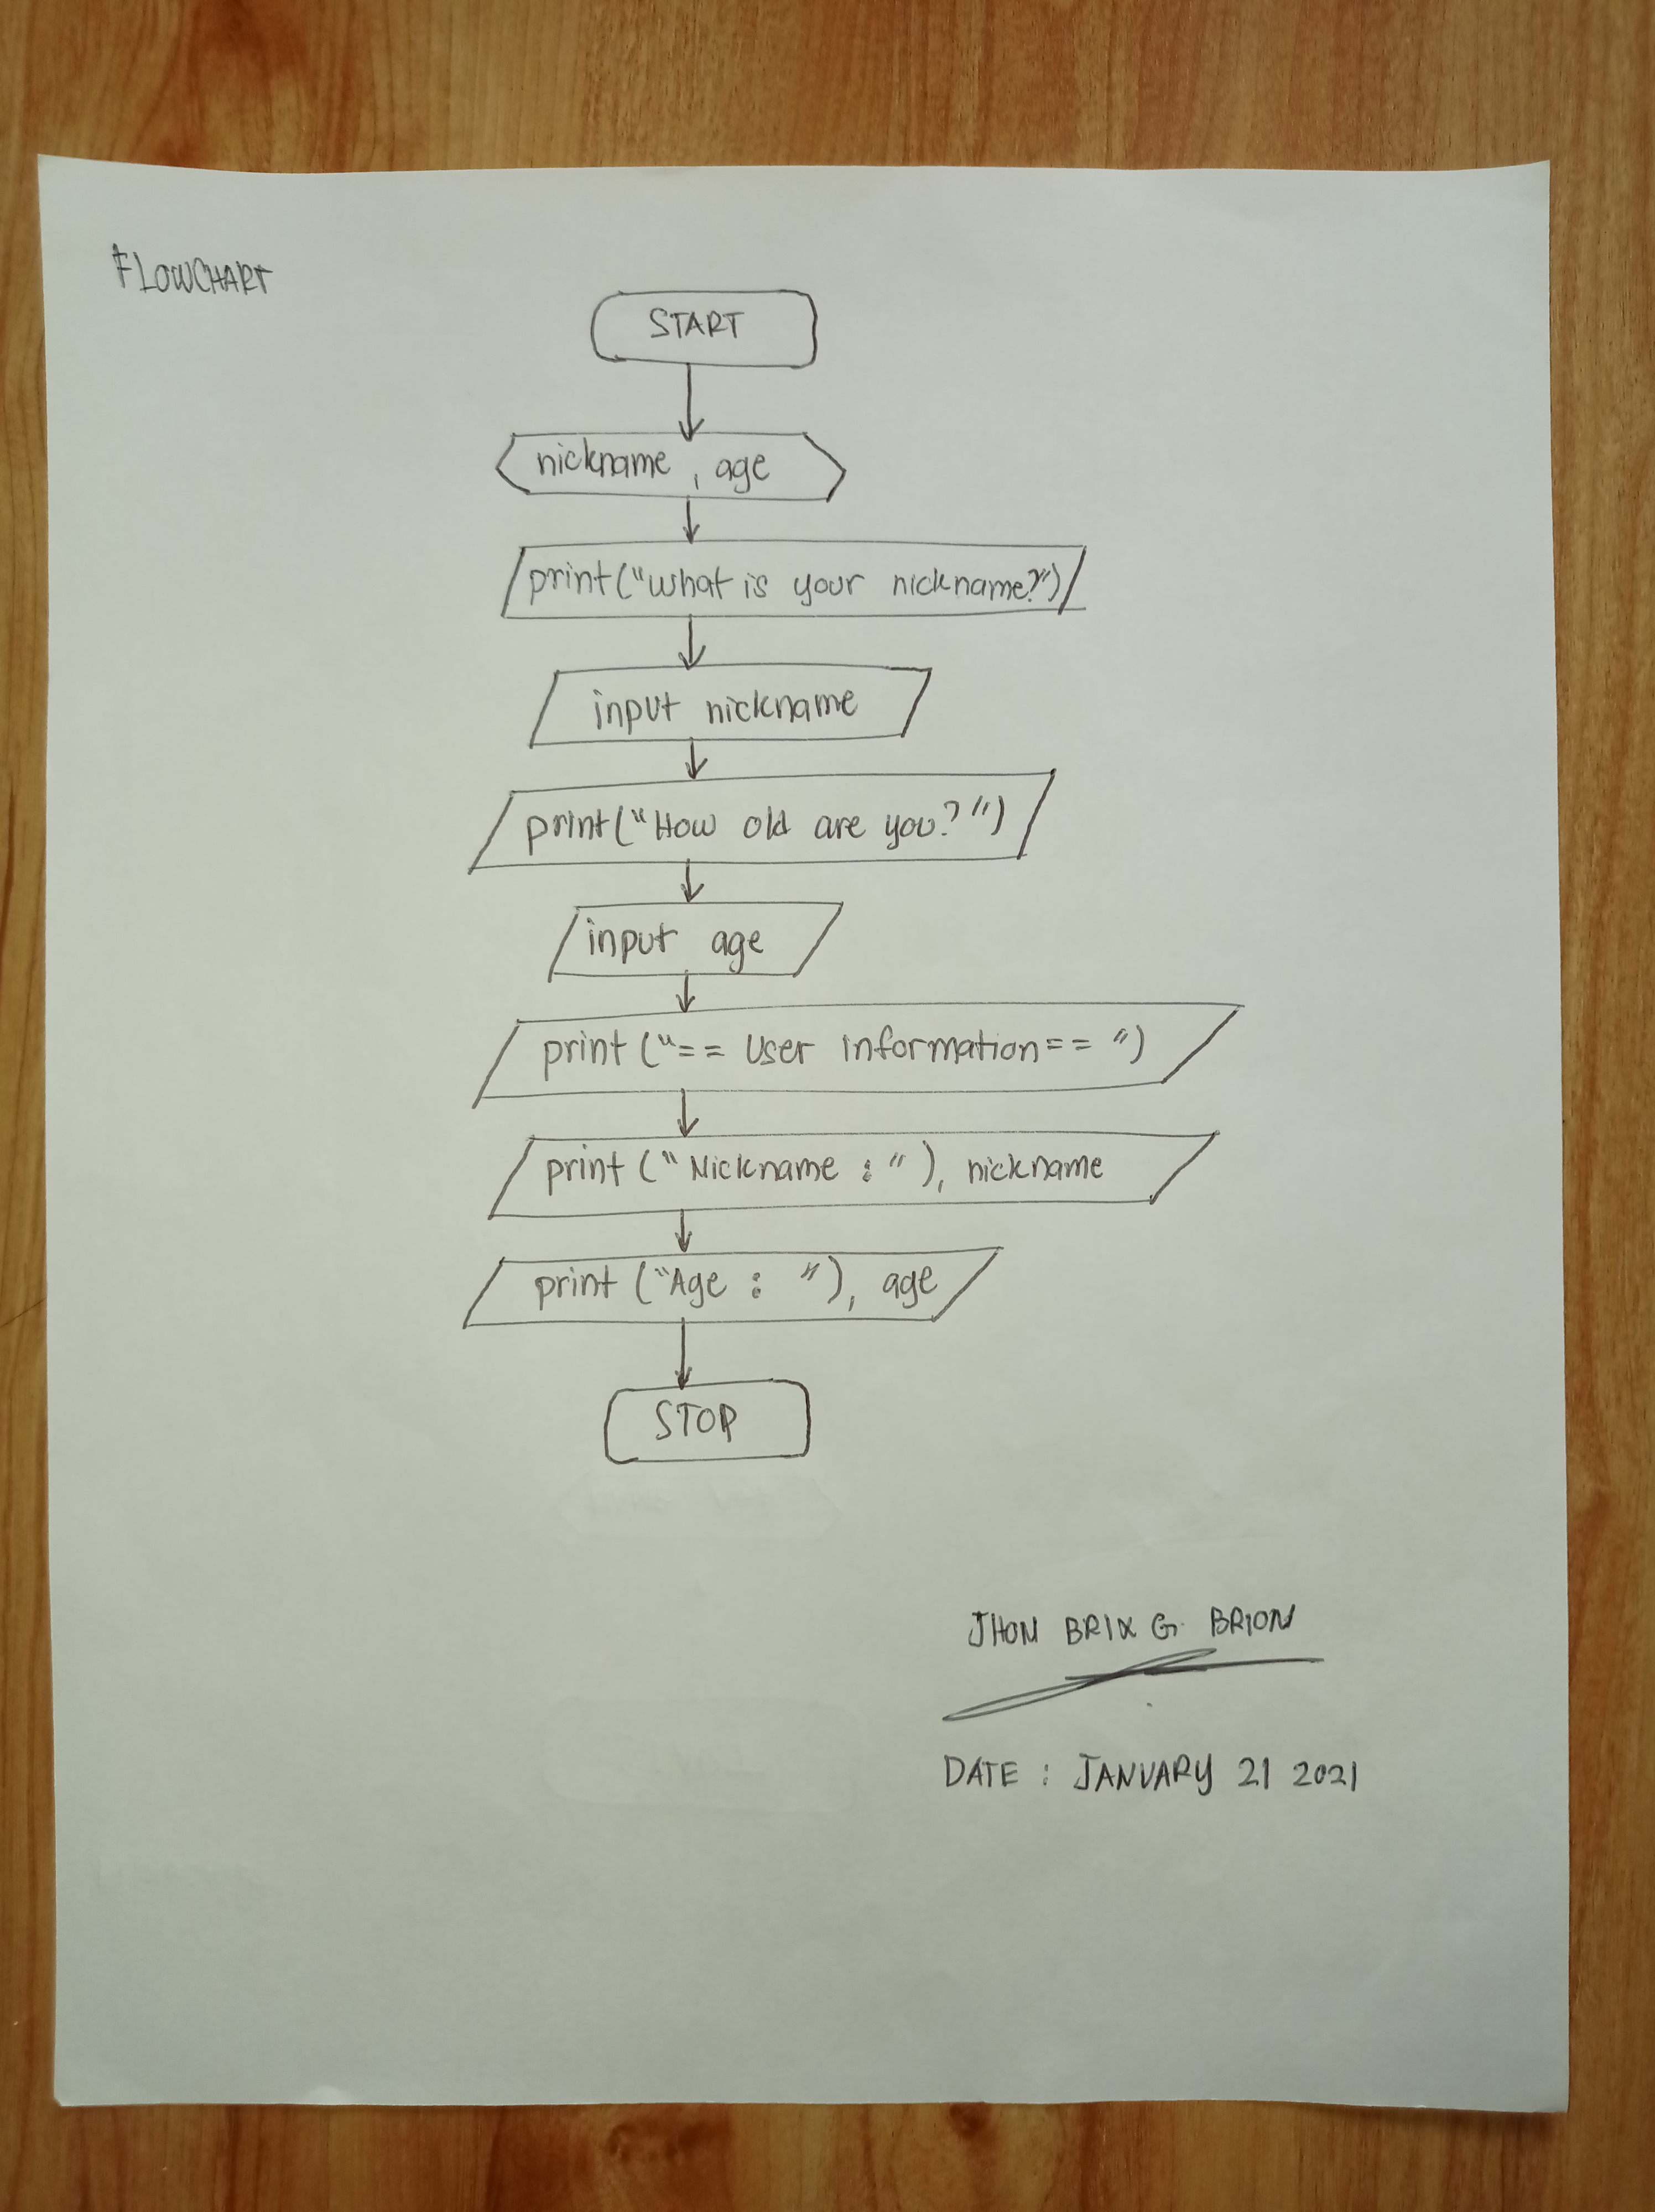 FLOWCHART
START
nickname , age
print("What is your nickname?")
input nickname
print("How old are you?")
input age
print ("== User Information== ")
print ("Nickname : "), nickname
print ("Age : "), age
STOP
JHON BRIX G. BRION
DATE : JANUARY 21 2021